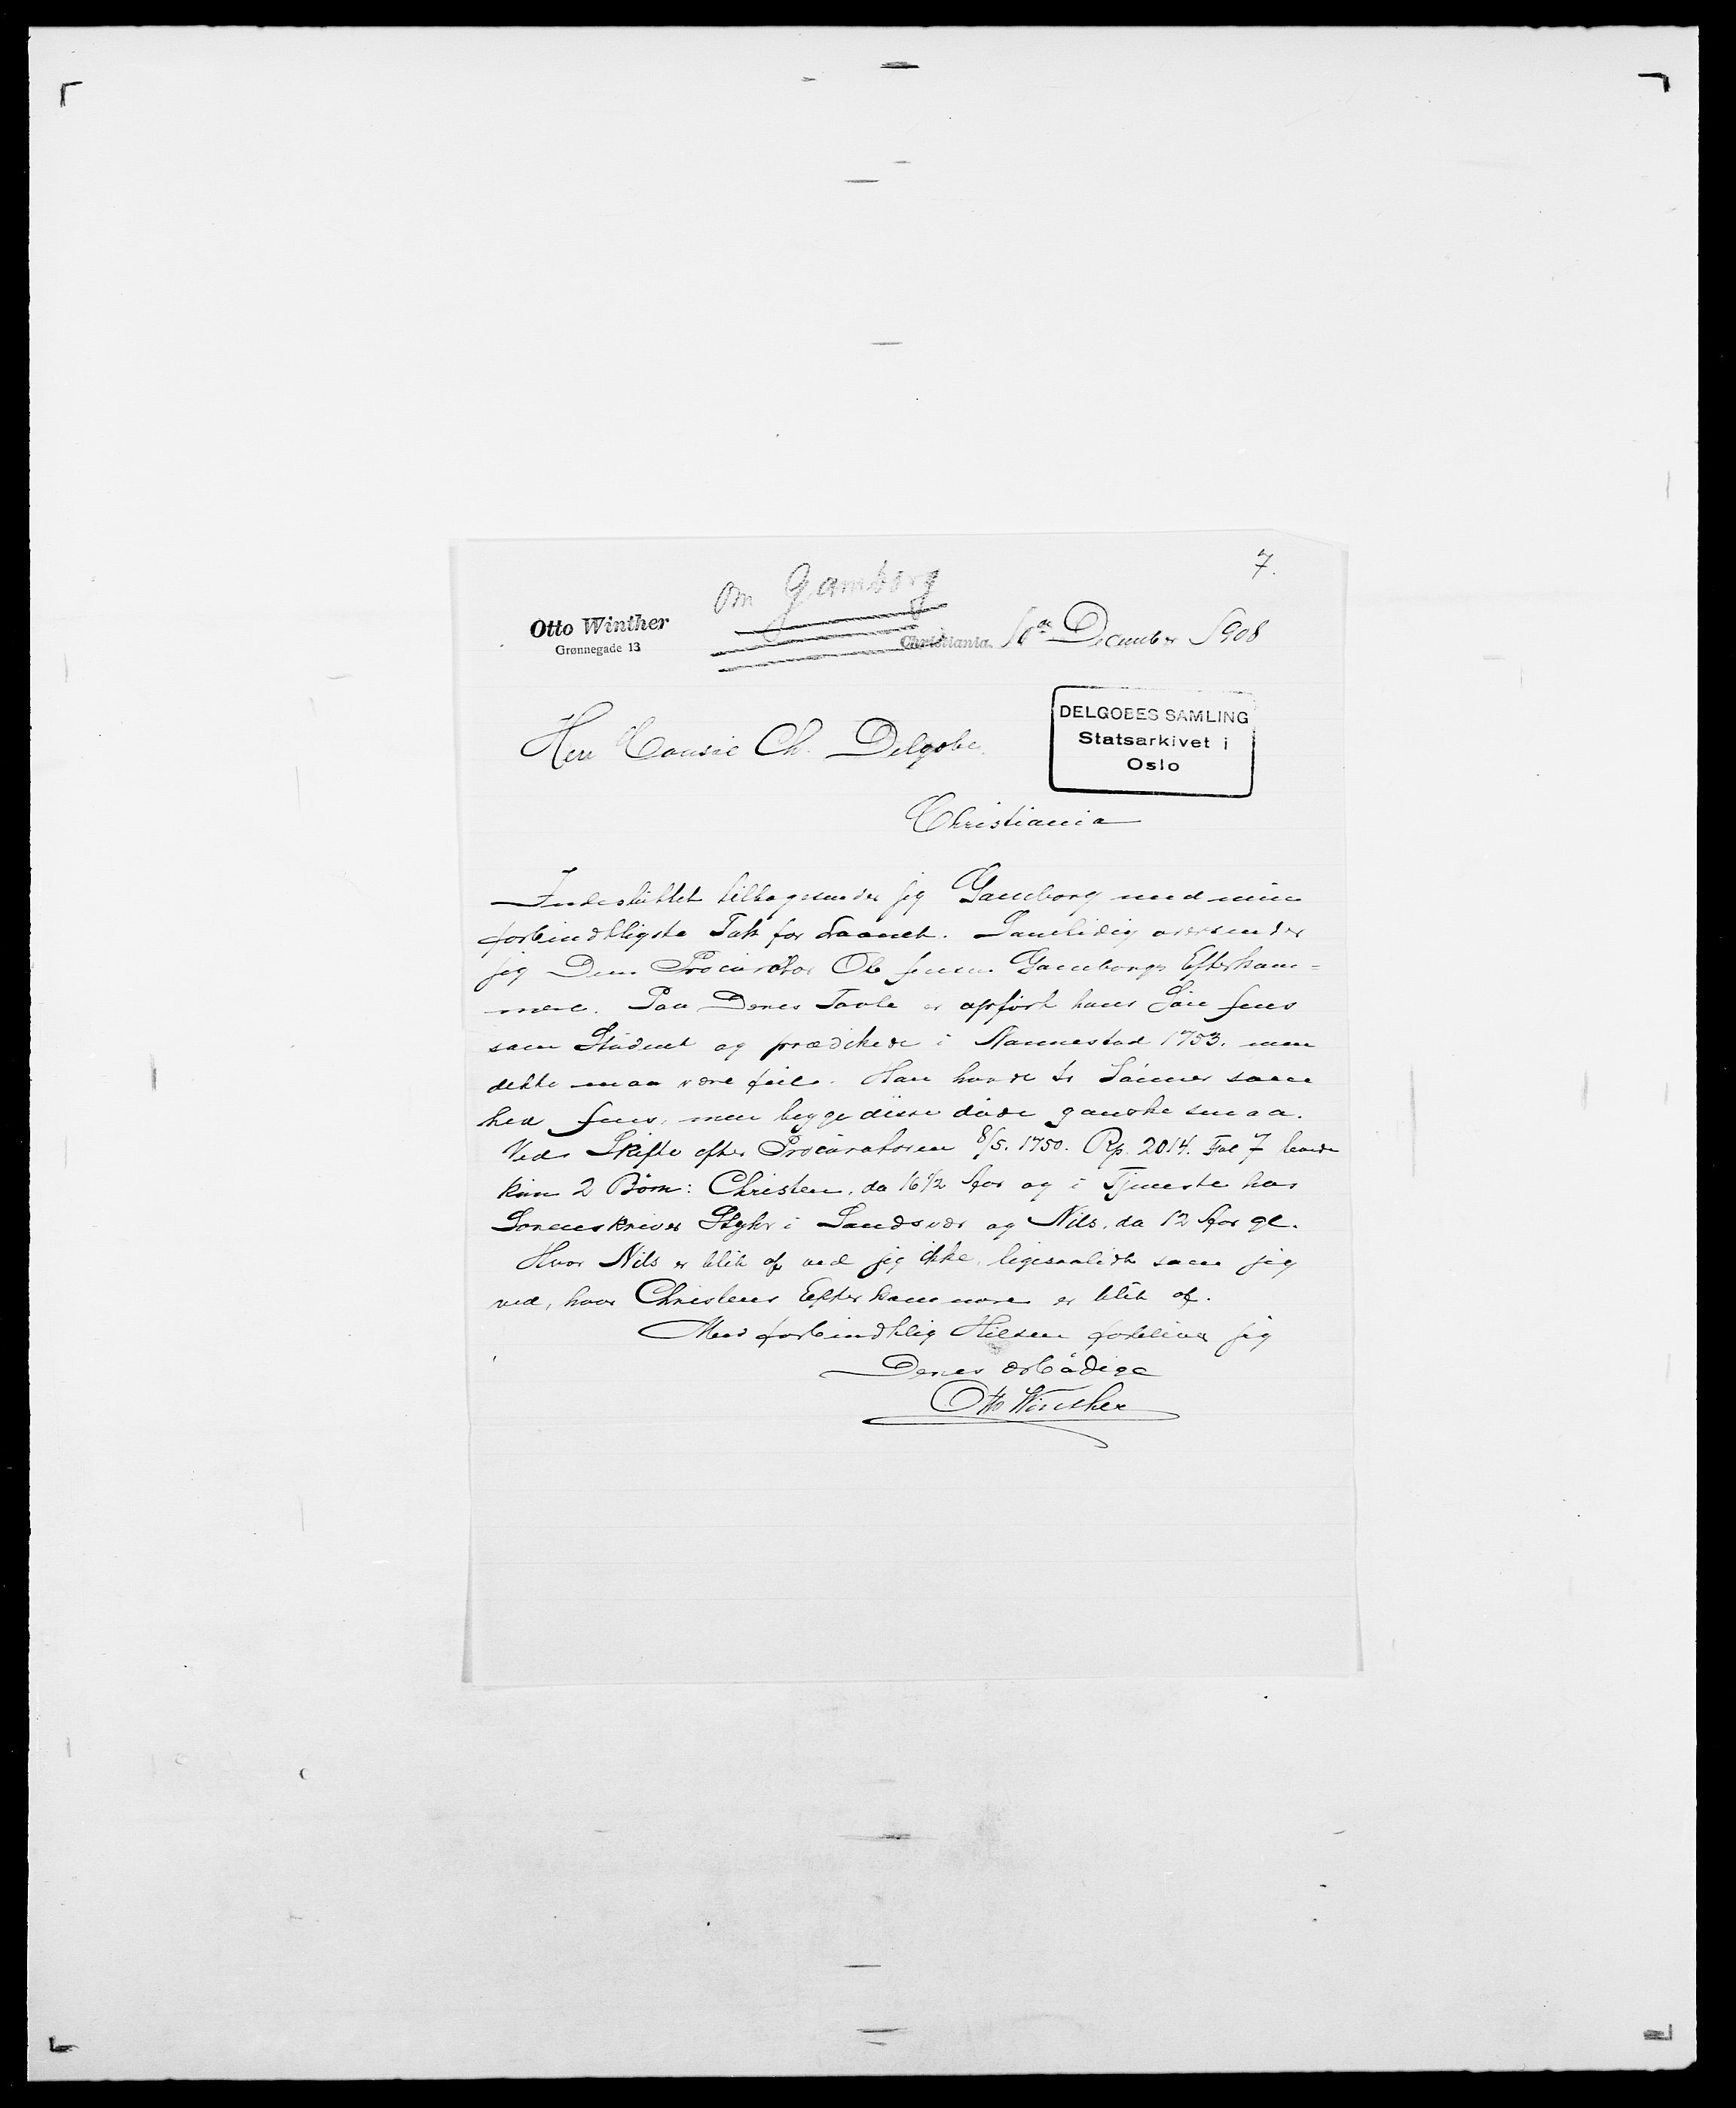 7.
Om Gamborg
Otto Winther
Grønnegade 13
Christiania 10de December 1908
DELGOBES SAMLING
Statsarkivet i
Oslo
Herr Consul Ch. Delgobe
Christiania
Indesluttet tilbagesender jeg Gamborg med min
forbindtligste Tak for Laanet. Samtidig oversender
jeg Dem Procurator Ole Jensen Gamborgs Efterkom=
mere. Paa Deres Tavle er opført hans Søn Jens
som Student og prædikede i Nannestad 1753, men
dette maa være feil. Han havde to Sønner som
hed Jens, men begge disse døde ganske smaa.
Ved Skifte efter Procuratoren 8/5. 1750. Rp. 2014. Fol 7 levede
kun 2 Børn: Christen, da 16 1/2 Aar og i Tjeneste hos
Sorenskriver Styhr i Sandsvær og Nils, da 12 Aar gl.
Hvor Nils er blit af ved jeg ikke, ligesaalidt som jeg
ved, hvor Christens Efterkommere er blit af.
Med forbindtlig Hilsen forbliver jeg
Deres ærbødige
Otto Winther